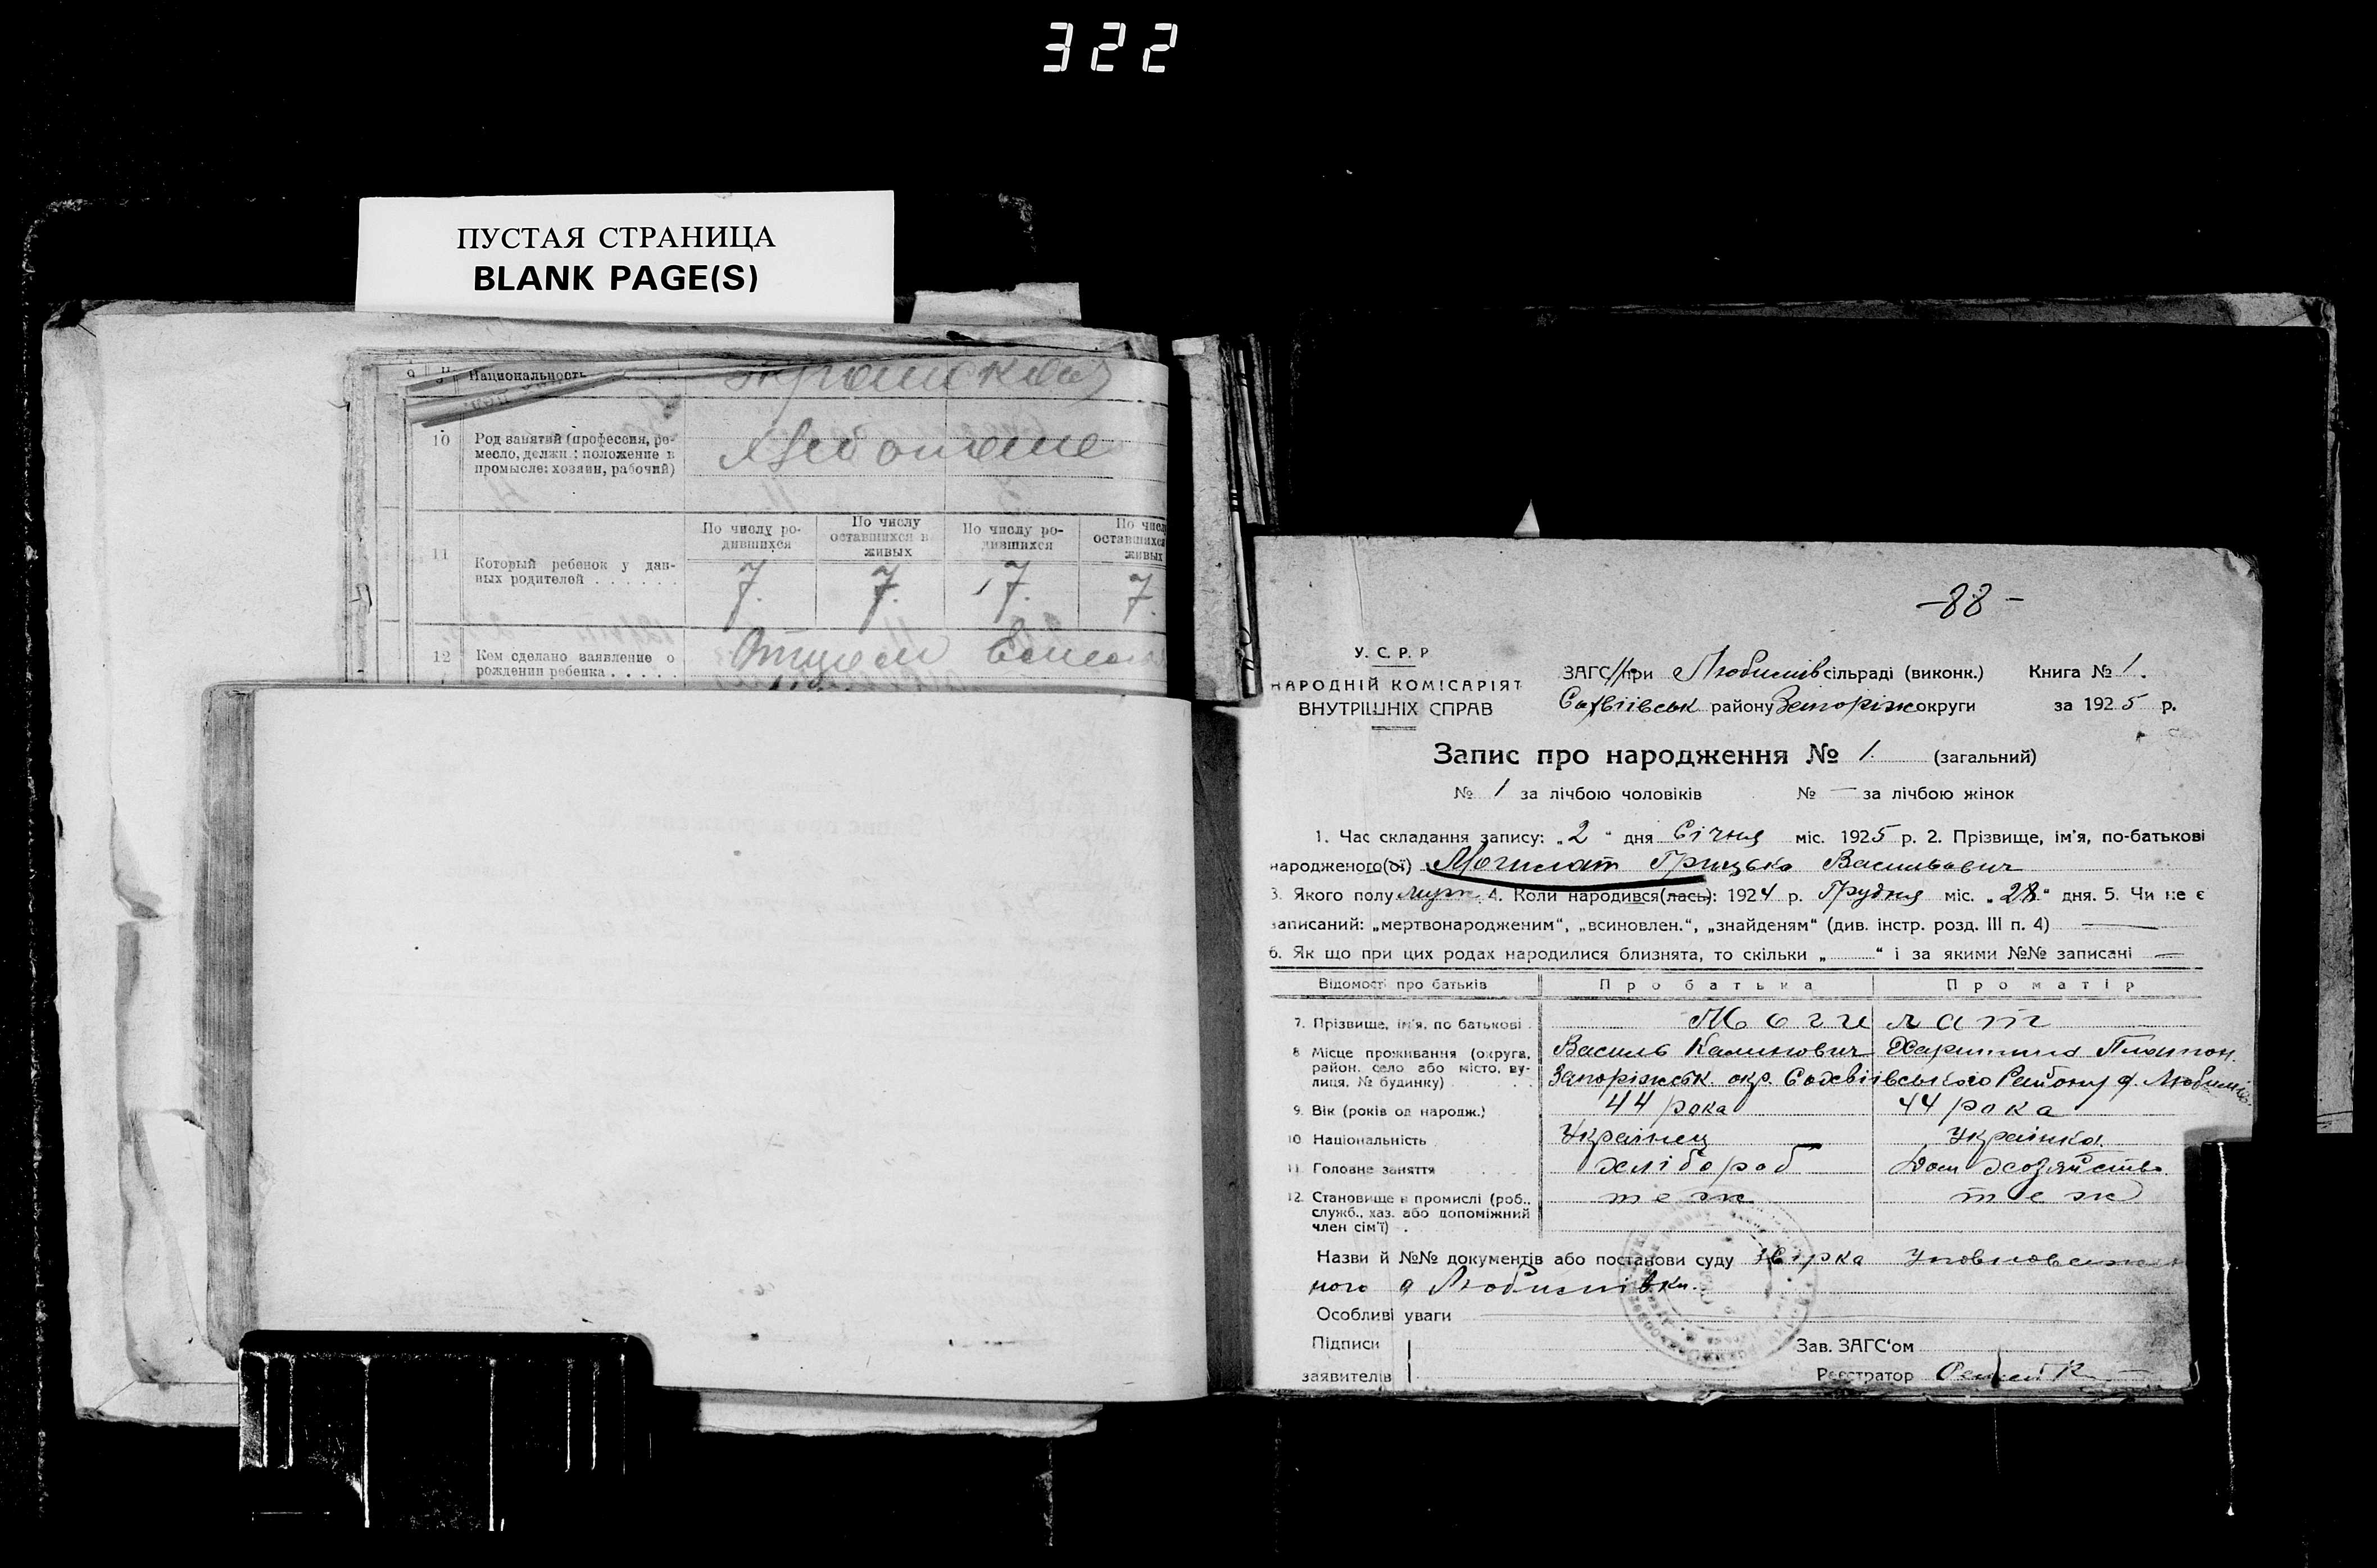 322
ПУСТАЯ СТРАНИЦА
BLANK PAGE(S)
9 Национальность
10 Род занятий (профессия, ре-
месло, должн.; положение в
промысле: хозяин, рабочий)
По числу ро-
дившихся
По числу
оставшихся в
живых
По числу ро-
дившихся
По числ
оставшихся
живых
11 Который ребенок у дан-
ных родителей . . . . . .
7. 7. 7. 7.
12 Кем сделано заявление о
рождении ребенка . . . . .
Отцом
-88-
У. С. Р. Р
НАРОДНІЙ КОМІСАРІЯТ
ВНУТРІШНІХ СПРАВ
ЗАГС при Любимівсільраді (виконк.) Книга № 1.
району Запоріжокруги за 1925 р.
Запис про народження № 1. (загальний)
№ 1 за лічбою чоловіків № — за лічбою жінок
1. Час складання запису: „2“ дня Січня міс. 1925 р. 2. Прізвище, ім'я, по-батькові
народженого(ої) Могилат Грицько Васильович
3. Якого полу муж. 4. Коли народився(лась): 1924 р. Грудня міс. „28“ дня. 5. Чи не є
записаний: „мертвонародженим“, „всиновлен.“, „знайденям“ (див. інстр. розд. III п. 4) —
6. Як що при цих родах народилися близнята, то скільки „ “ і за якими №№ записані —
Відомості про батьків Про батька Про матір
7. Прізвище, ім'я, по батькові Могилат
Василь Калинович Харитина Платон.
8 Місце проживання (округа,
район, село або місто, ву-
лиця, № будинку)
Запоріжськ. окр. Району
9. Вік (років од народж.) 44 рока 44 рока
10 Національність Українец Українка
11 Головне заняття хлібороб Дом хозяйство
12. Становище в промислі (роб.,
служб., хаз. або допоміжний
член сім'ї) .
теж теж
Назви й №№ документів або постанови суду
ного Любимівки.
Особливі уваги
Підписи
заявителів
Зав. ЗАГС'ом
Реєстратор